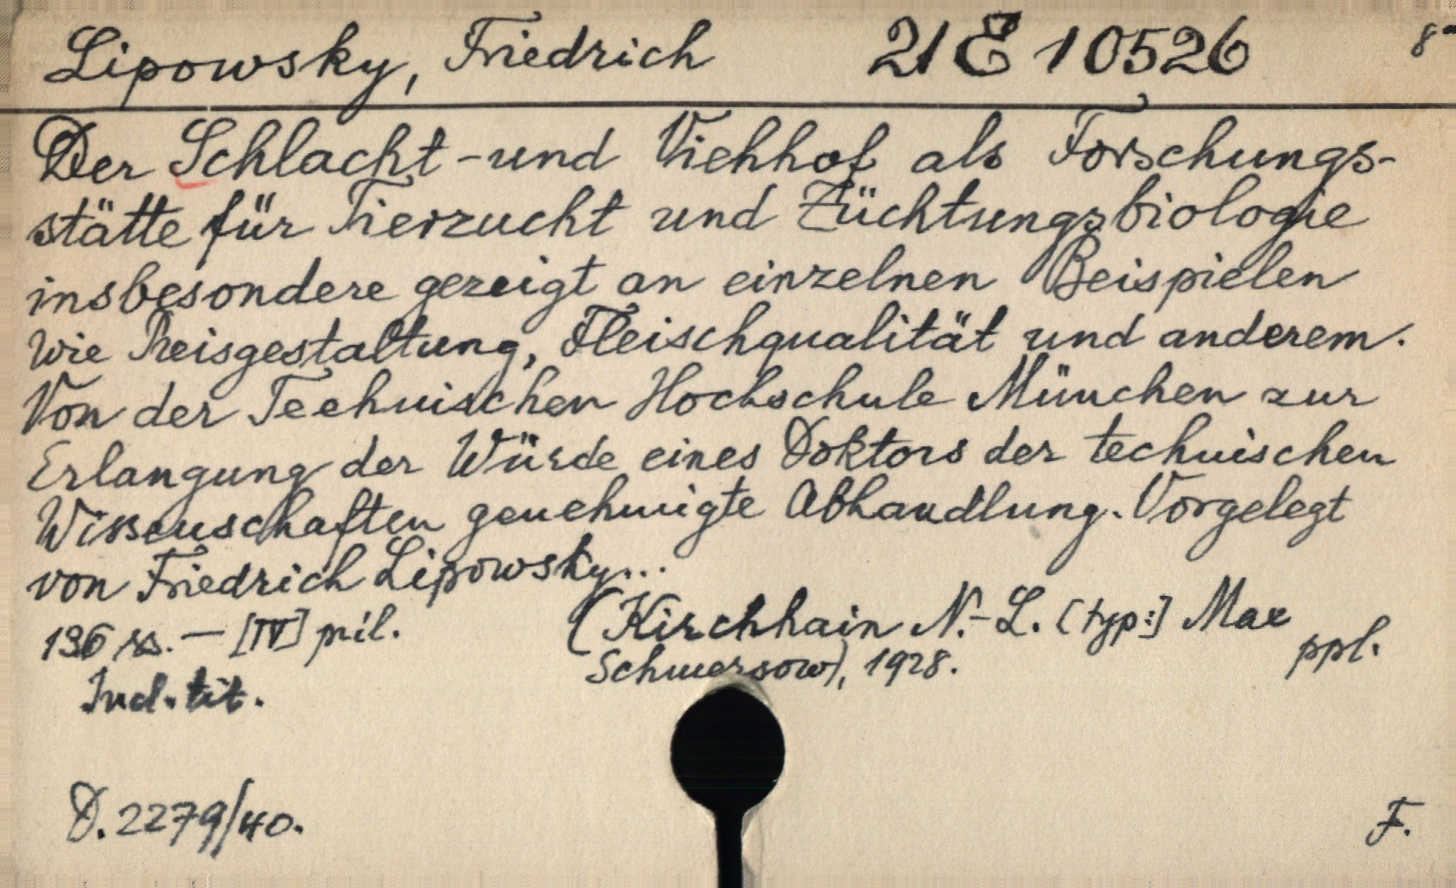 Lipowsky, Friedrich 21 E 10526 8°
Der Schlacht - und Viehhof als Forschungs-
stätte für Tierzucht und Züchtungsbiologie
insbesondere gezeigt an einzelnen Beispielen
wie Preisgestaltung, Fleischqualität und anderem.
Von der Technischen Hochschule München zur
Erlangung der Würde eines Doktors der technischen
Wissenschaften genehmigte Abhandlung. Vorgelegt
von Friedrich Lipowsky...
136 ss. — [IV] pril. (Kirchhain N.-L. [typ:] Max
Schmersow), 1928. ppl.
Ind. tit.
D. 2279/40. F.